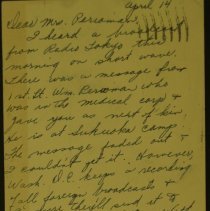 April 14
Dear Mrs. Personan,
I heard a broad
from Radio Tokyo this
morning on short wave.
There was a message from
1st. Lt. Wm. Personan who
was in the medical corps &
gave you as next of kin.
He is at camp.
The message faded out &
I couldn't get it. However,
Wash. D.C. keeps a recording
of all foreign broadcasts &
they'll send it to